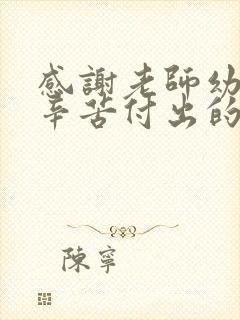 感謝老師幼
辛苦付出的
陳寧